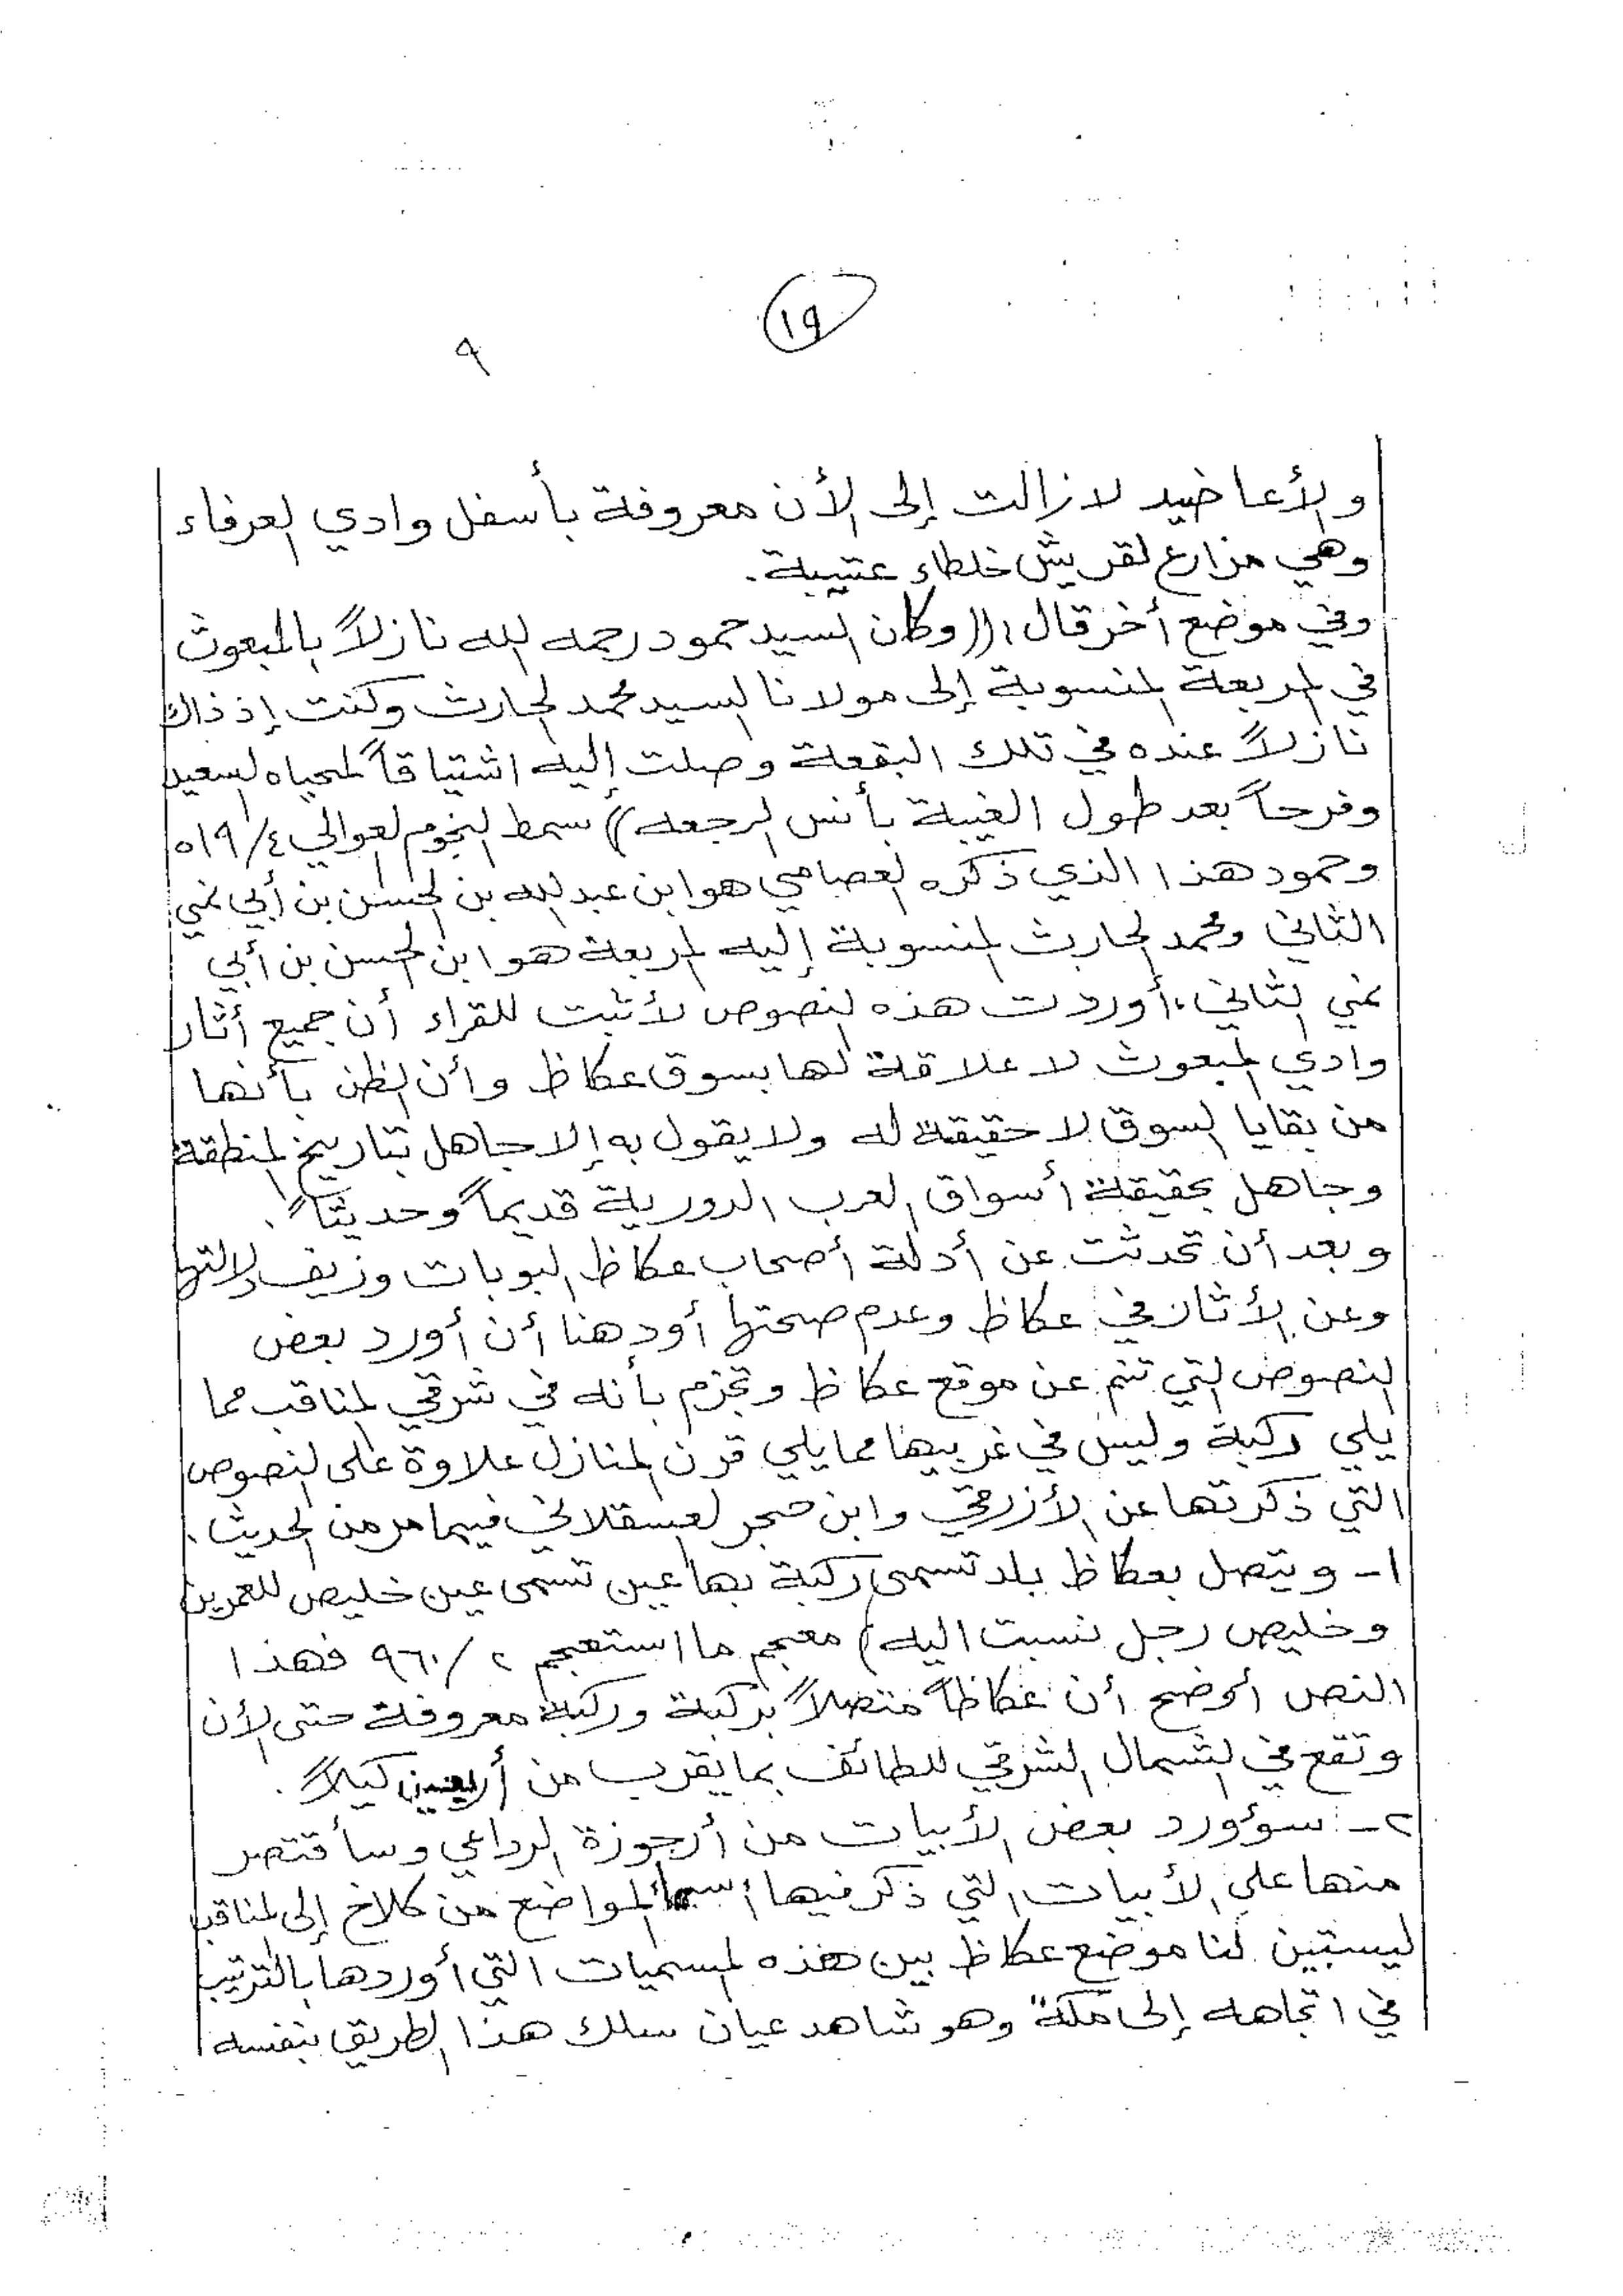 ١٩
٩
والأعاضيد لازالت إلى الأن معروفة بأسفل وادي العرفاء
وهي مزارع لقريش خلطاء عتيبة.
وفي موضع أخر قال ((وكان السيد حمود رحمه الله نازلاً بالمبعوث
في المربعة المنسوبة إلى مولانا السيد محمد الحارث وكنت إذ ذاك
نازلاً عنده في تلك البقعة وصلت إليه اشتياقاً لمحياه السعيد
وفرحاً بعد طول الغيبة بأنس الرجعه)) سمط النجوم العوالي ٥١٩/٤
وحمود هذا الذي ذكره العصامي هو ابن عبدالله بن الحسن بن أبي نمي
الثاني ومحمد الحارث المنسوبة إليه المربعة هو ابن الحسن بن أبي
نمي الثاني، أوردت هذه النصوص لأثبت للقراء أن جميع أثار
وادي المبعوث لا علاقة لها بسوق عكاظ وأن الظن بأنها
من بقايا السوق لا حقيقة له ولا يقول به إلا جاهل بتاريخ المنطقة
وجاهل بحقيقة أسواق العرب الدورية قديماً وحديثاً.
وبعد أن تحدثت عن أدلة أصحاب عكاظ البوبات وزيف دلالتها
وعن الأثار في عكاظ وعدم صحتها أود هنا أن أورد بعض
النصوص التي تنم عن موقع عكاظ وتجزم بأنه في شرقي المناقب مما
يلي ركبة وليس في غربيها مما يلي قرن المنازل علاوة على النصوص
التي ذكرتها عن الأزرقي وابن حجر العسقلاني فيما مر من الحديث.
١- ويتصل بعكاظ بلد تسمى ركبة بها عين تسمى عين خليص للعمريين
وخليص رجل نسبت اليه) معجم ما استعجم ٢/٩٦٠ فهذا
النص أوضح أن عكاظاً متصلاً بركبة وركبة معروفة حتى الأن
وتقع في الشمال الشرقي للطائف بما يقرب من أربعين كيلاً.
٢- سؤورد بعض الأبيات من أرجوزة الرداعي وسأقتصر
منها على الأبيات التي ذكر فيها أسماء المواضع من كلاخ إلى المناقب
ليستبين لنا موضع عكاظ بين هذه المسميات التي أوردها بالترتيب
في اتجاهه إلى مكة وهو شاهد عيان سلك هذا الطريق بنفسه